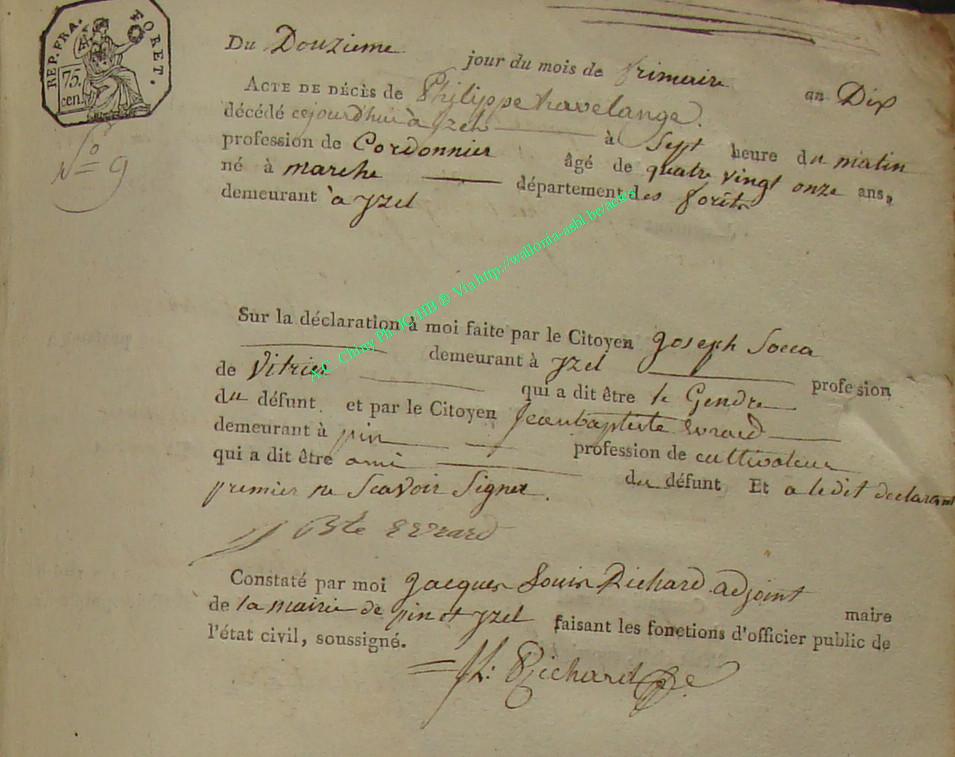 REP. FRA. FORET.
75. cen.
Du Douzieme jour du mois de frimaire an Dix
No 9
ACTE DE DÉCÈS de Philippe havelange.
décédé cejourdhui à yzel à Sept heure du matin
profession de Cordonnier âgé de quatre vingt onze ans,
né à marche département des forêts
demeurant à yzel
Sur la déclaration à moi faite par le Citoyen Joseph Socca
demeurant à yzel profession
de Vitrier qui a dit être le Gendre
du défunt et par le Citoyen Jeanbaptiste Evrard
demeurant à pin profession de cultivateur
qui a dit être ami du défunt Et a ledit declarant
premier ne Scavoir Signer.
J Bte Evrard
Constaté par moi Jacques Louis Richard adjoint maire
de la mairie de pin et yzel faisant les fonctions d'officier public de
l'état civil, soussigné.
JL: Richard
AC Chiny Ph JG HB @ Via http://wallonia-asbl.be/actes